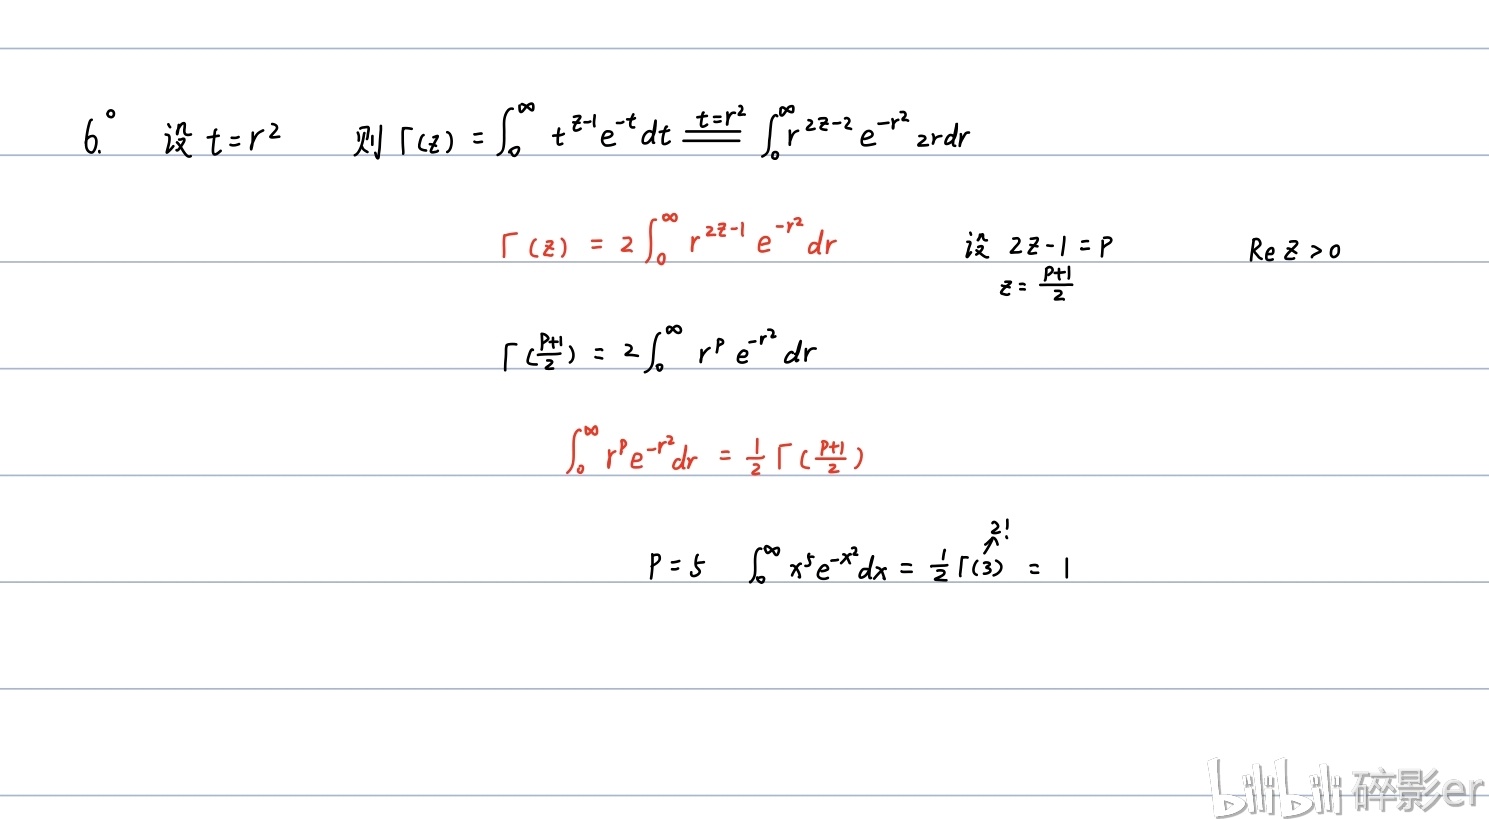 6.° 设 t=r² 则 Γ(z) = ∫₀^∞ t^{z-1} e^{-t} dt \overset{t=r²}{=} ∫₀^∞ r^{2z-2} e^{-r²} 2rdr
Γ(z) = 2∫₀^∞ r^{2z-1} e^{-r²} dr 设 2z-1=p Re z>0
z = \frac{p+1}{2}
Γ(\frac{p+1}{2}) = 2∫₀^∞ r^p e^{-r²} dr
∫₀^∞ r^p e^{-r²} dr = \frac{1}{2} Γ(\frac{p+1}{2})
2!
p=5 ∫₀^∞ x⁵e^{-x²}dx = \frac{1}{2} Γ(3) = 1
bilibili 碎影er